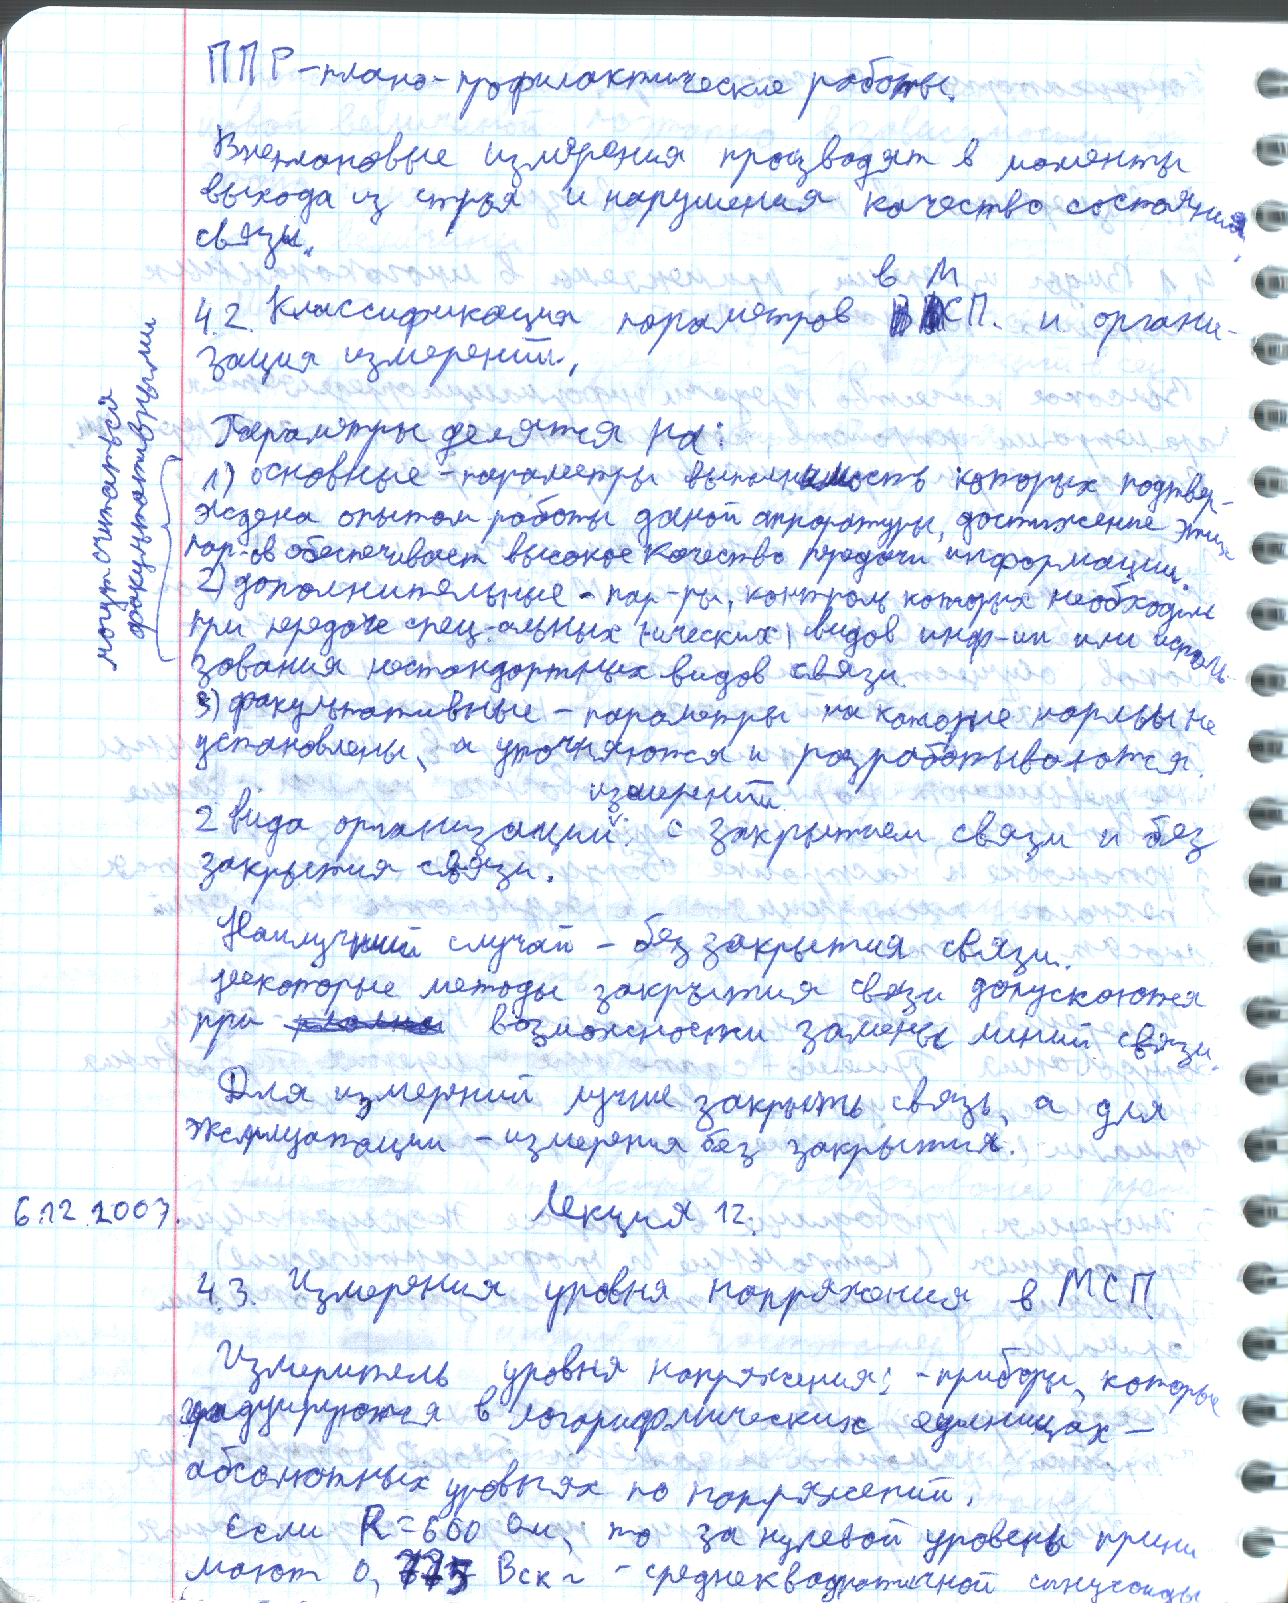 ППР – плано-профилактические работы.
Внеплановые измерения производят в моменты
выхода из строя и нарушения качество состояния
связи.
в М
4.2. Классификация параметров СП. и органи-
зация измерений.
Параметры делятся на:
1) основные – параметры которых подтвер-
ждена опытом работы даной аппаратуры, достижение этих
пар-ов обеспечивает высокое качество передачи информации.
2) дополнительные – пар-ры, контроль которых необходим
при передаче спец-альных (ических) видов инф-ии или исполь-
зования нестандортных видов связи.
3) факультативные – параметры на которые нормы не
установлены, а уточняются и разрабатываются.
могут считаться
факультативными
измерений
2 вида организаций: с закрытием связи и без
закрытия связи.
Наилучший случай – без закрытия связи.
Некоторые методы закрытия связи допускаются
при возможности замены линий связи.
Для измерений лучше закрыть связь, а для
эксплуатации – измерения без закрытия.
6.12.2007. Лекция 12.
4.3. Измерения уровня напряжения в МСП
Измеритель уровня напряжения: – приборы, которые
градуируются в логарифмических единицах –
абсолютных уровнях по напряжений.
Если R = 600 Ом, то за нулевой уровень прини
мают 0,775 Вск – среднеквадратичной синусоиды